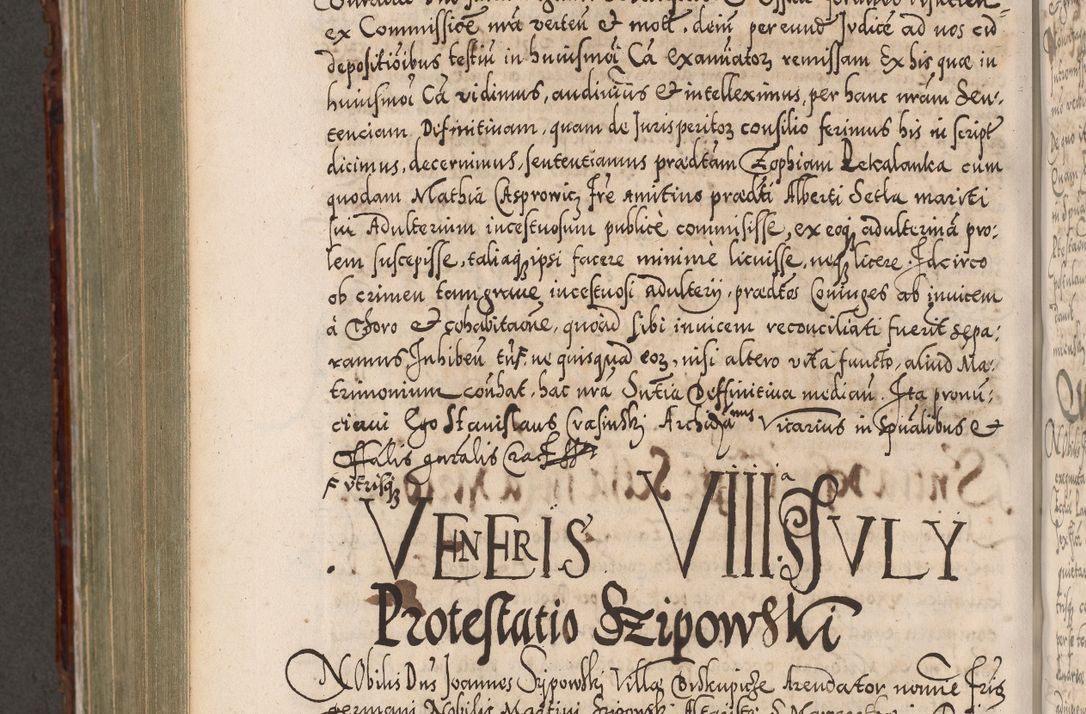 ex Commissioe nra verteñ et motẽ, dein pereund Judicẽ ad nos cũ
depositioibus testiũ in huiusmoi Cã examinatoꝝ remissam Ex his quæ in
huiusmoi Cã vidimus, audiuimus et intelleximus, per hanc nram Sen-
tenciam Definitiuam, quam de Jurisperitoꝝ consilio ferimus his in script
dicimus, decernimus, sententiamus prædtam Zophiam Rekalanka cum
quodam Mathia Casprowicz fre amitino prædti Alberti Setla mariti
sui Adulterium incestuosum publicè commisisse, ex eoqꝫ adulterinã pro-
lem suscepisse, taliaqꝫ ipsi facere minimè licuisse, neqꝫ licere. Idcirco
ob crimen tam graue incestuosi adulterij, prædtos Coniuges ab inuicem
à Thoro et cohabitaone, quoad sibi inuicem reconciliati fuerit sepa-
ramus Inhibeñ tñ ne quisquã eoꝝ, nisi altero vita functo, aliud Ma-
trimonium conhat, hac nrã Sntia Deffinitiua mediañ. Ita pronũ-
ciaui Ego Stanislaus Crasinski Archid nus Vicarius in Spualibus et
Offalis gnralis Crac
f vtrisqꝫ
VENERIS VIIII.a JULY
Protestatio Szipowski
Nobilis Dns Joannes Sypowski Villæ Biskupicze Arendator nomine fris
germani Nobilis Martini Szipowski